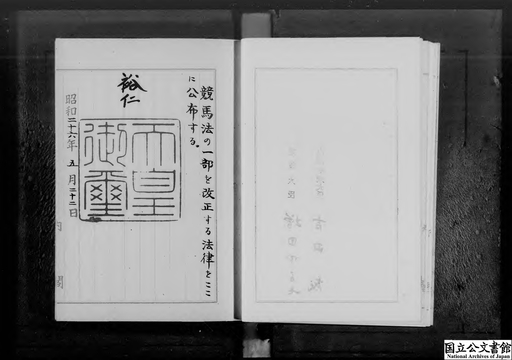 競馬法の一部を改正する法律をここ
に公布する。
裕仁
天皇
御璽
昭和二十六年五月二十二日
内閣
国立公文書館
National Archives of Japan